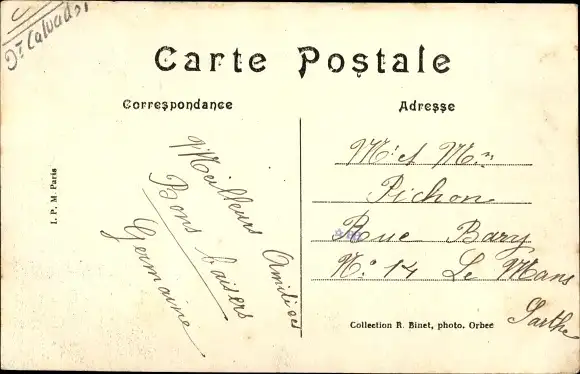 Dt Calvados
Carte Postale
Correspondance
Adresse
Meilleurs Amitiées
Bons baisers
Germaine
Mr et Mme
Pichon
Rue Bary
No 14 Le Mans
Sarthe
I. P. M. Paris
Collection R. Binet, photo. Orbec